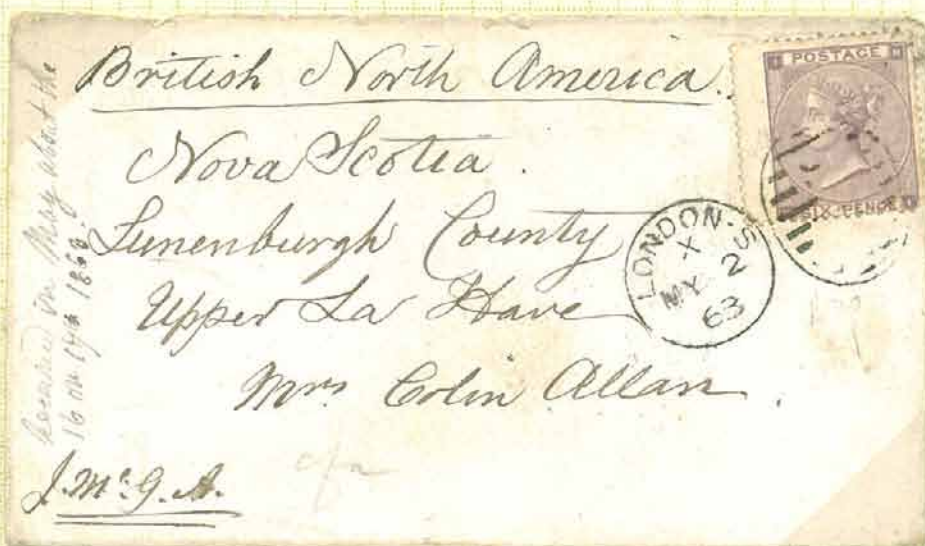 British North America.
Nova Scotia.
Lunenburgh County
Upper La Have
Mrs Colin Allan.
J. Mc. G. A.
in May about the
16 or 17th
POSTAGE
SIX PENCE
LONDON-S
X
MY 2
63